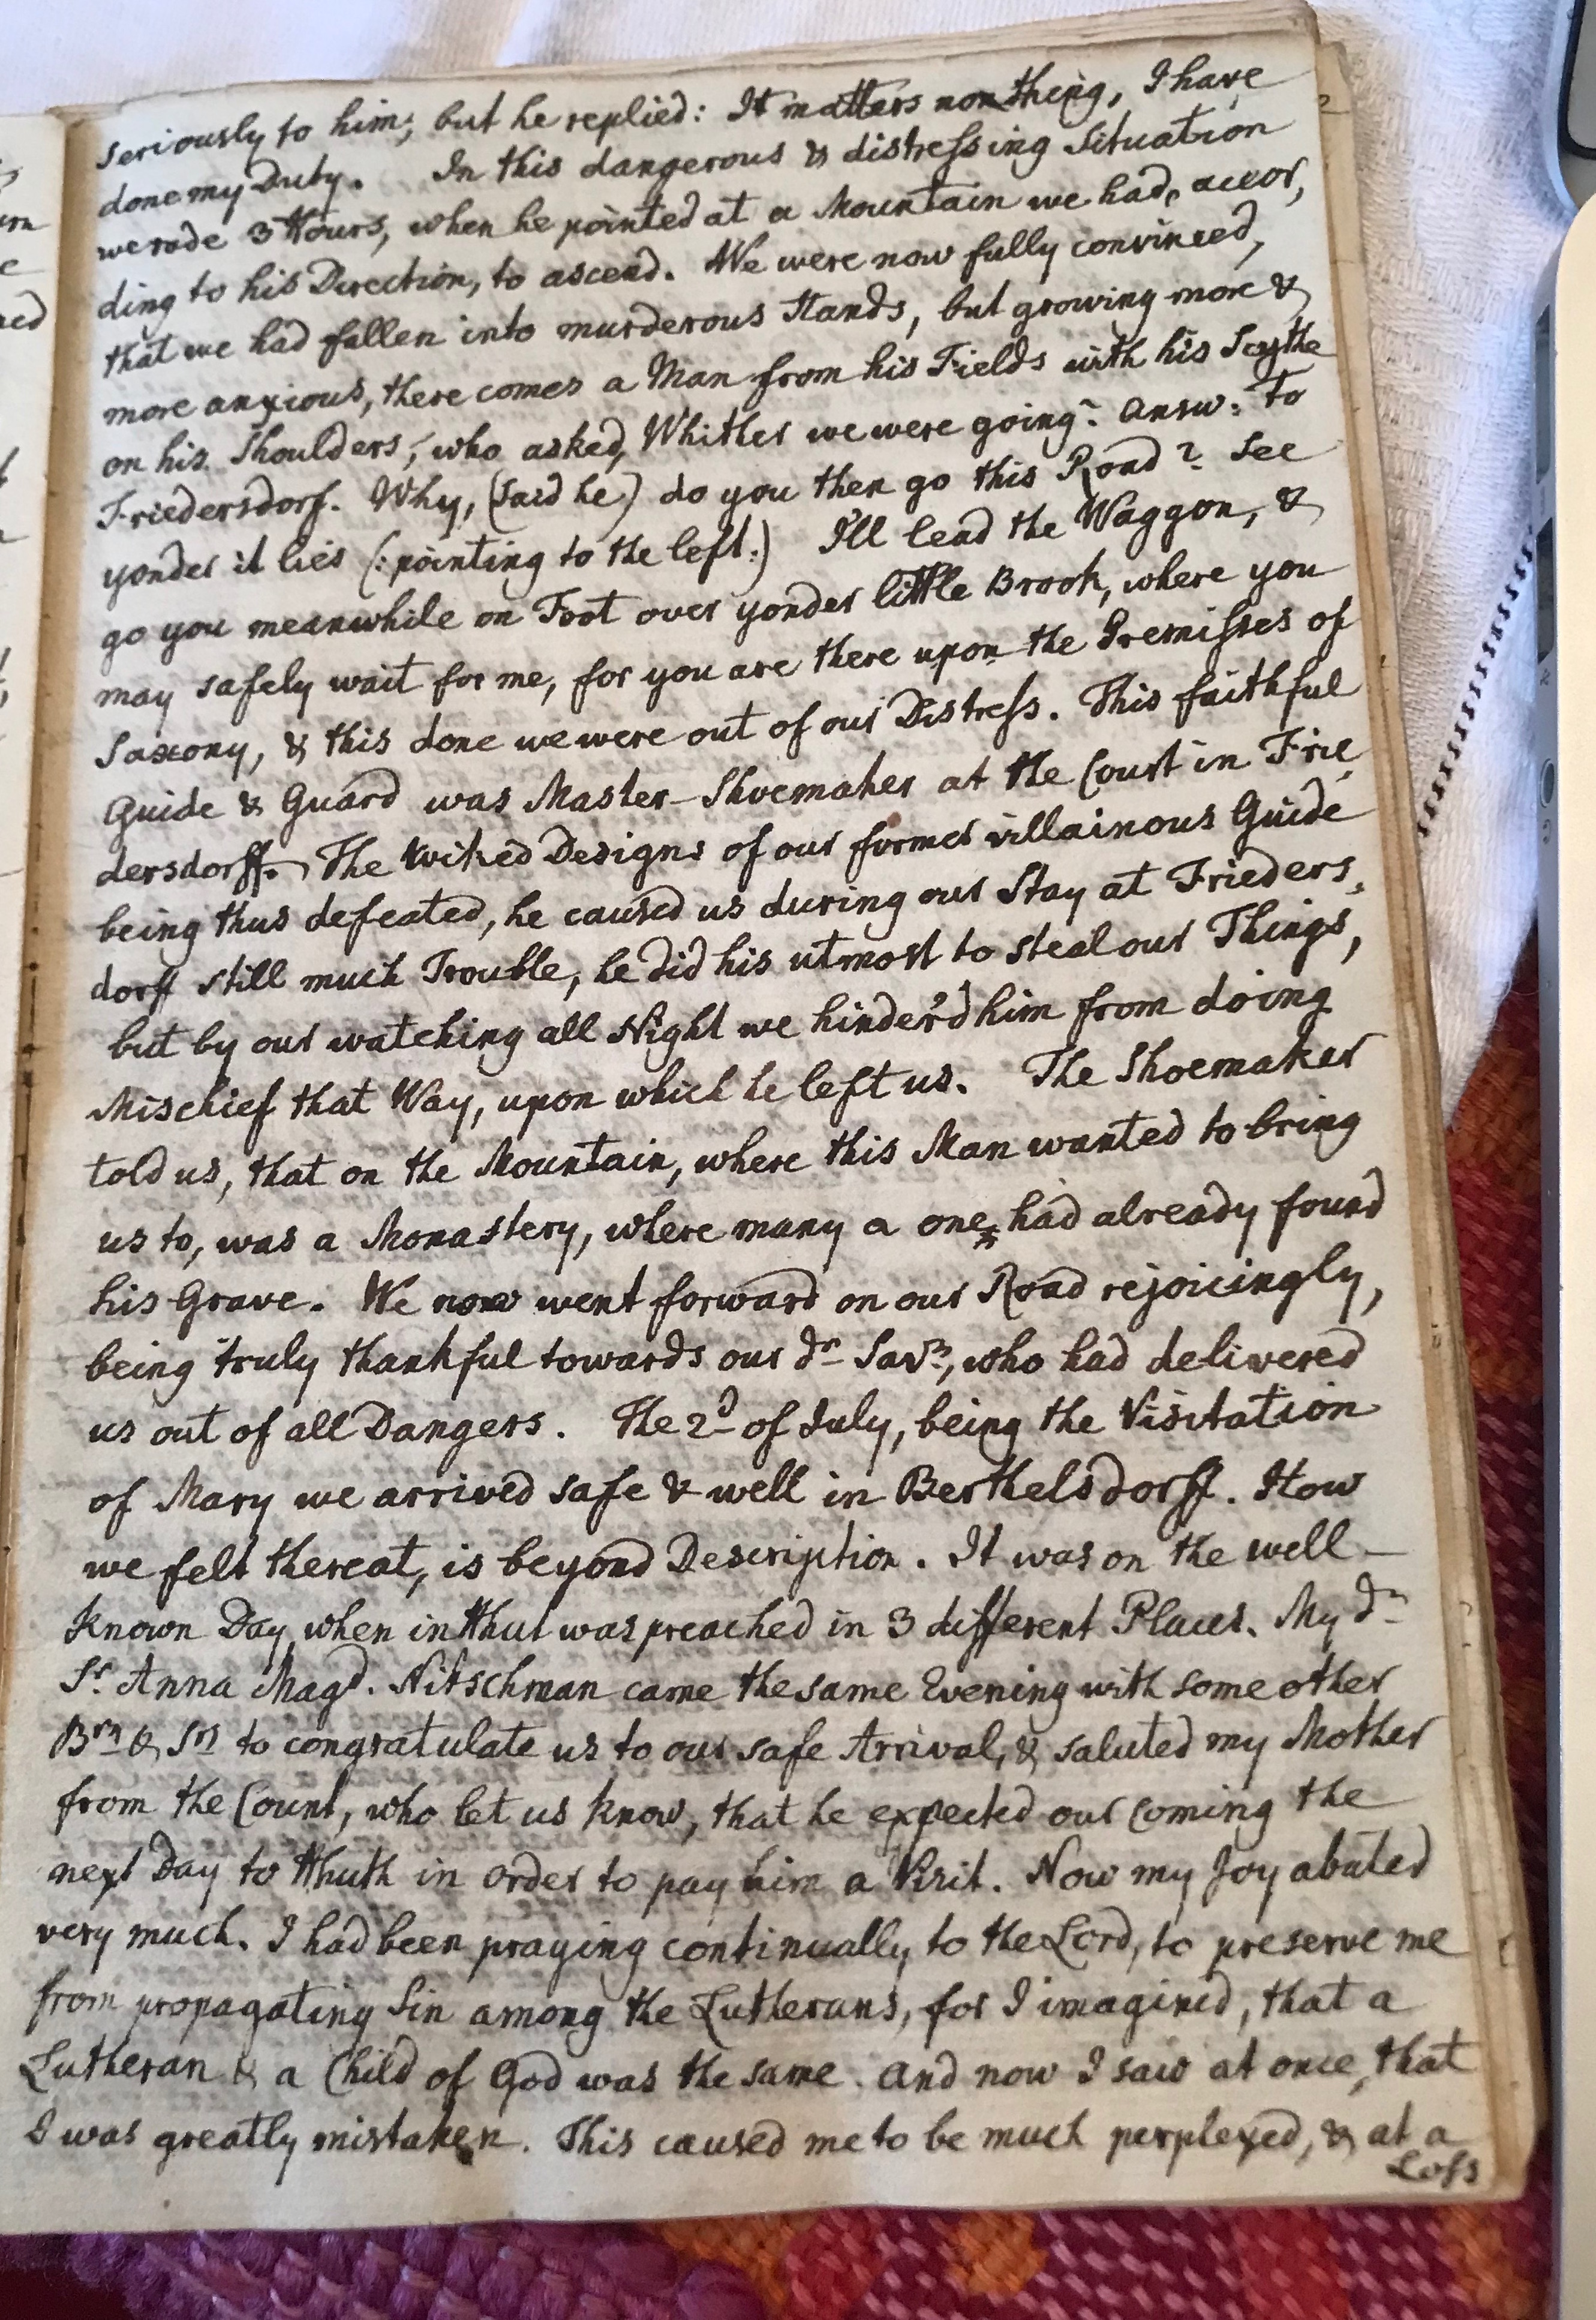 seriously to him; but he replied: It matters nothing, I have
done my Duty. In this dangerous & distressing Situation
we rode 3 Hours, when he pointed at a Mountain we had, accor,
ding to his Direction, to ascend. We were now fully convinced,
that we had fallen into murderous Hands, but growing more &
more anxious, there comes a Man from his Fields with his Scythe
on his Shoulders, who asked, Whither we were going? Answ: To
Friedersdorf. Why, (said he) do you then go this Road? See
yonder it lies (: pointing to the left:) I'll lead the Waggon, &
go you meanwhile on Foot over yonder little Brook, where you
may safely wait for me, for you are there upon the Premisses of
Saxony, & this done we were out of our Distress. This faithful
Guide & Guard was Master-Shoemaker at the Court in Frie,
dersdorff. The wiked Designs of our former villainous Guide
being thus defeated, he caused us during our Stay at Frieders,
dorff still much Trouble, he did his utmost to steal our Things,
but by our watching all Night we hinder'd him from doing
Mischief that Way, upon which he left us. The Shoemaker
told us, that on the Mountain, where this Man wanted to bring
us to, was a Monastery, where many a one had already found
his Grave. We now went forward on our Road rejoicingly,
being truly thankful towards our dr Savr, who had delivered
us out of all Dangers. The 2d of July, being the Visitation
of Mary we arrived safe & well in Berthelsdorff. How
we felt thereat, is beyond Description. It was on the well-
known Day when in Hhut was preached in 3 different Places. My dr
Sr. Anna Magd. Nitschman came the same Evening with some other
Brn & Srs to congratulate us to our safe Arrival, & saluted my Mother
from the Count, who let us know, that he expected our coming the
next Day to Hhuth in order to pay him a Visit. Now my Joy abated
very much. I had been praying continually to the Lord, to preserve me
from propagating Sin among the Lutherans, for I imagined, that a
Lutheran & a Child of God was the same. And now I saw at once, that
I was greatly mistaken. This caused me to be much perplexed, & at a
Loss